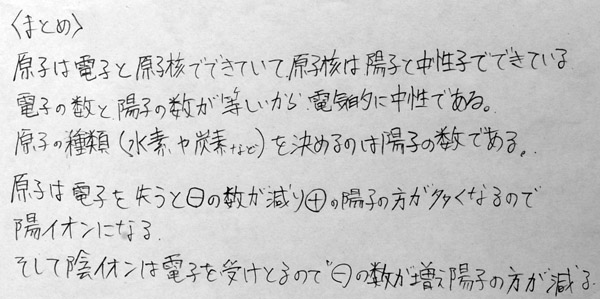 〈まとめ〉
原子は電子と原子核でできていて、原子核は陽子と中性子でできている
電子の数と陽子の数が等しいから電気的に中性である。
原子の種類(水素や炭素など)を決めるのは陽子の数である。
原子は電子を失うと⊖の数が減り⊕の陽子の方が多くなるので
陽イオンになる.
そして陰イオンは電子を受けとるので⊖の数が増え陽子の方が減る.